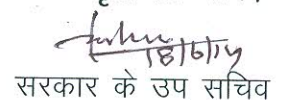 18/6/14
सरकार के उप सचिव